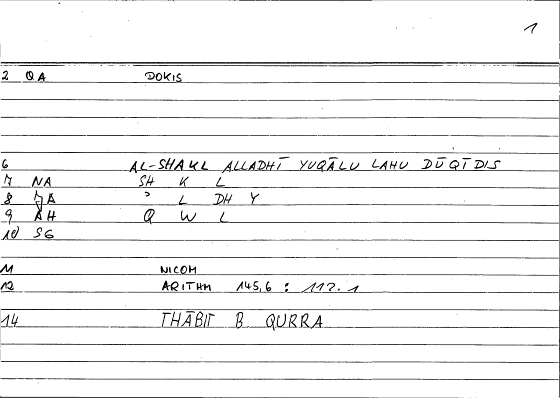 1
2 QA DOKIS
6 AL-SHAKL ALLADHĪ YUQĀLU LAHU DŪQĪDIS
7 NA SH K L
8 ʾ L DH Y
9 AH Q W L
10 SG
11 NICOM
12 ARITHM 145,6 : 112.1
14 THĀBIT B QURRA